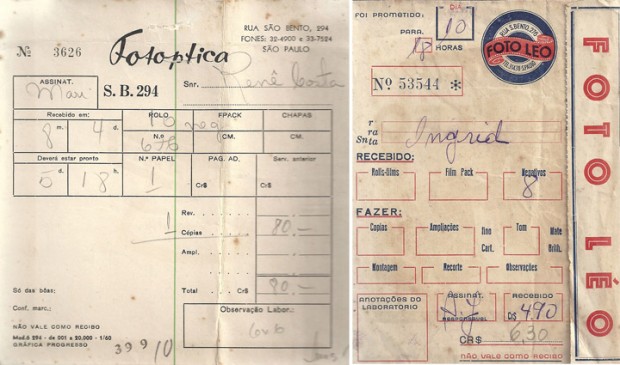 Nº 3626
Fotoptica
RUA SÃO BENTO, 294
FONES: 32-4900 e 33-7524
SÃO PAULO
ASSINAT.
S. B. 294
Snr. Renê Costa
Recebido em:
ROLO
FPACK
CHAPAS
8 m. 4 d.
10 neg
N.º 676
CM.
CM.
Deverá estar pronto
N.º PAPEL
PAG. AD.
Sem. anterior
5 d. 18 h.
1
CR$
CR$
Rev.
1
Cópias
80.-
Ampl.
Total
Cr$ 80-
Só das bôas:
Conf. marc.:
Observação Labor.:
NÃO VALE COMO RECIBO
Mod.S 294 - de 001 a 20.000 - 1/60
GRÁFICA PROGRESSO
399/10
FOI PROMETIDO:
DIA
10
PARA:
18 HORAS
RUA S. BENTO, 276
FOTO LEO
Nº 53544 *
Ingrid
Snta
RECEBIDO:
Rolls-films
Film Pack
Negativos
8
FAZER:
Copias
Ampliações
fino
Cart.
Tom
Mate
Brilh.
Montagem
Recorte
Observações
ANOTAÇÕES DO LABORATÓRIO
ASSINAT.
RESPONSABEL
RECEBIDO
D$ 490
CR$ 6,30
NÃO VALE COMO RECIBO
FOTO LÉO